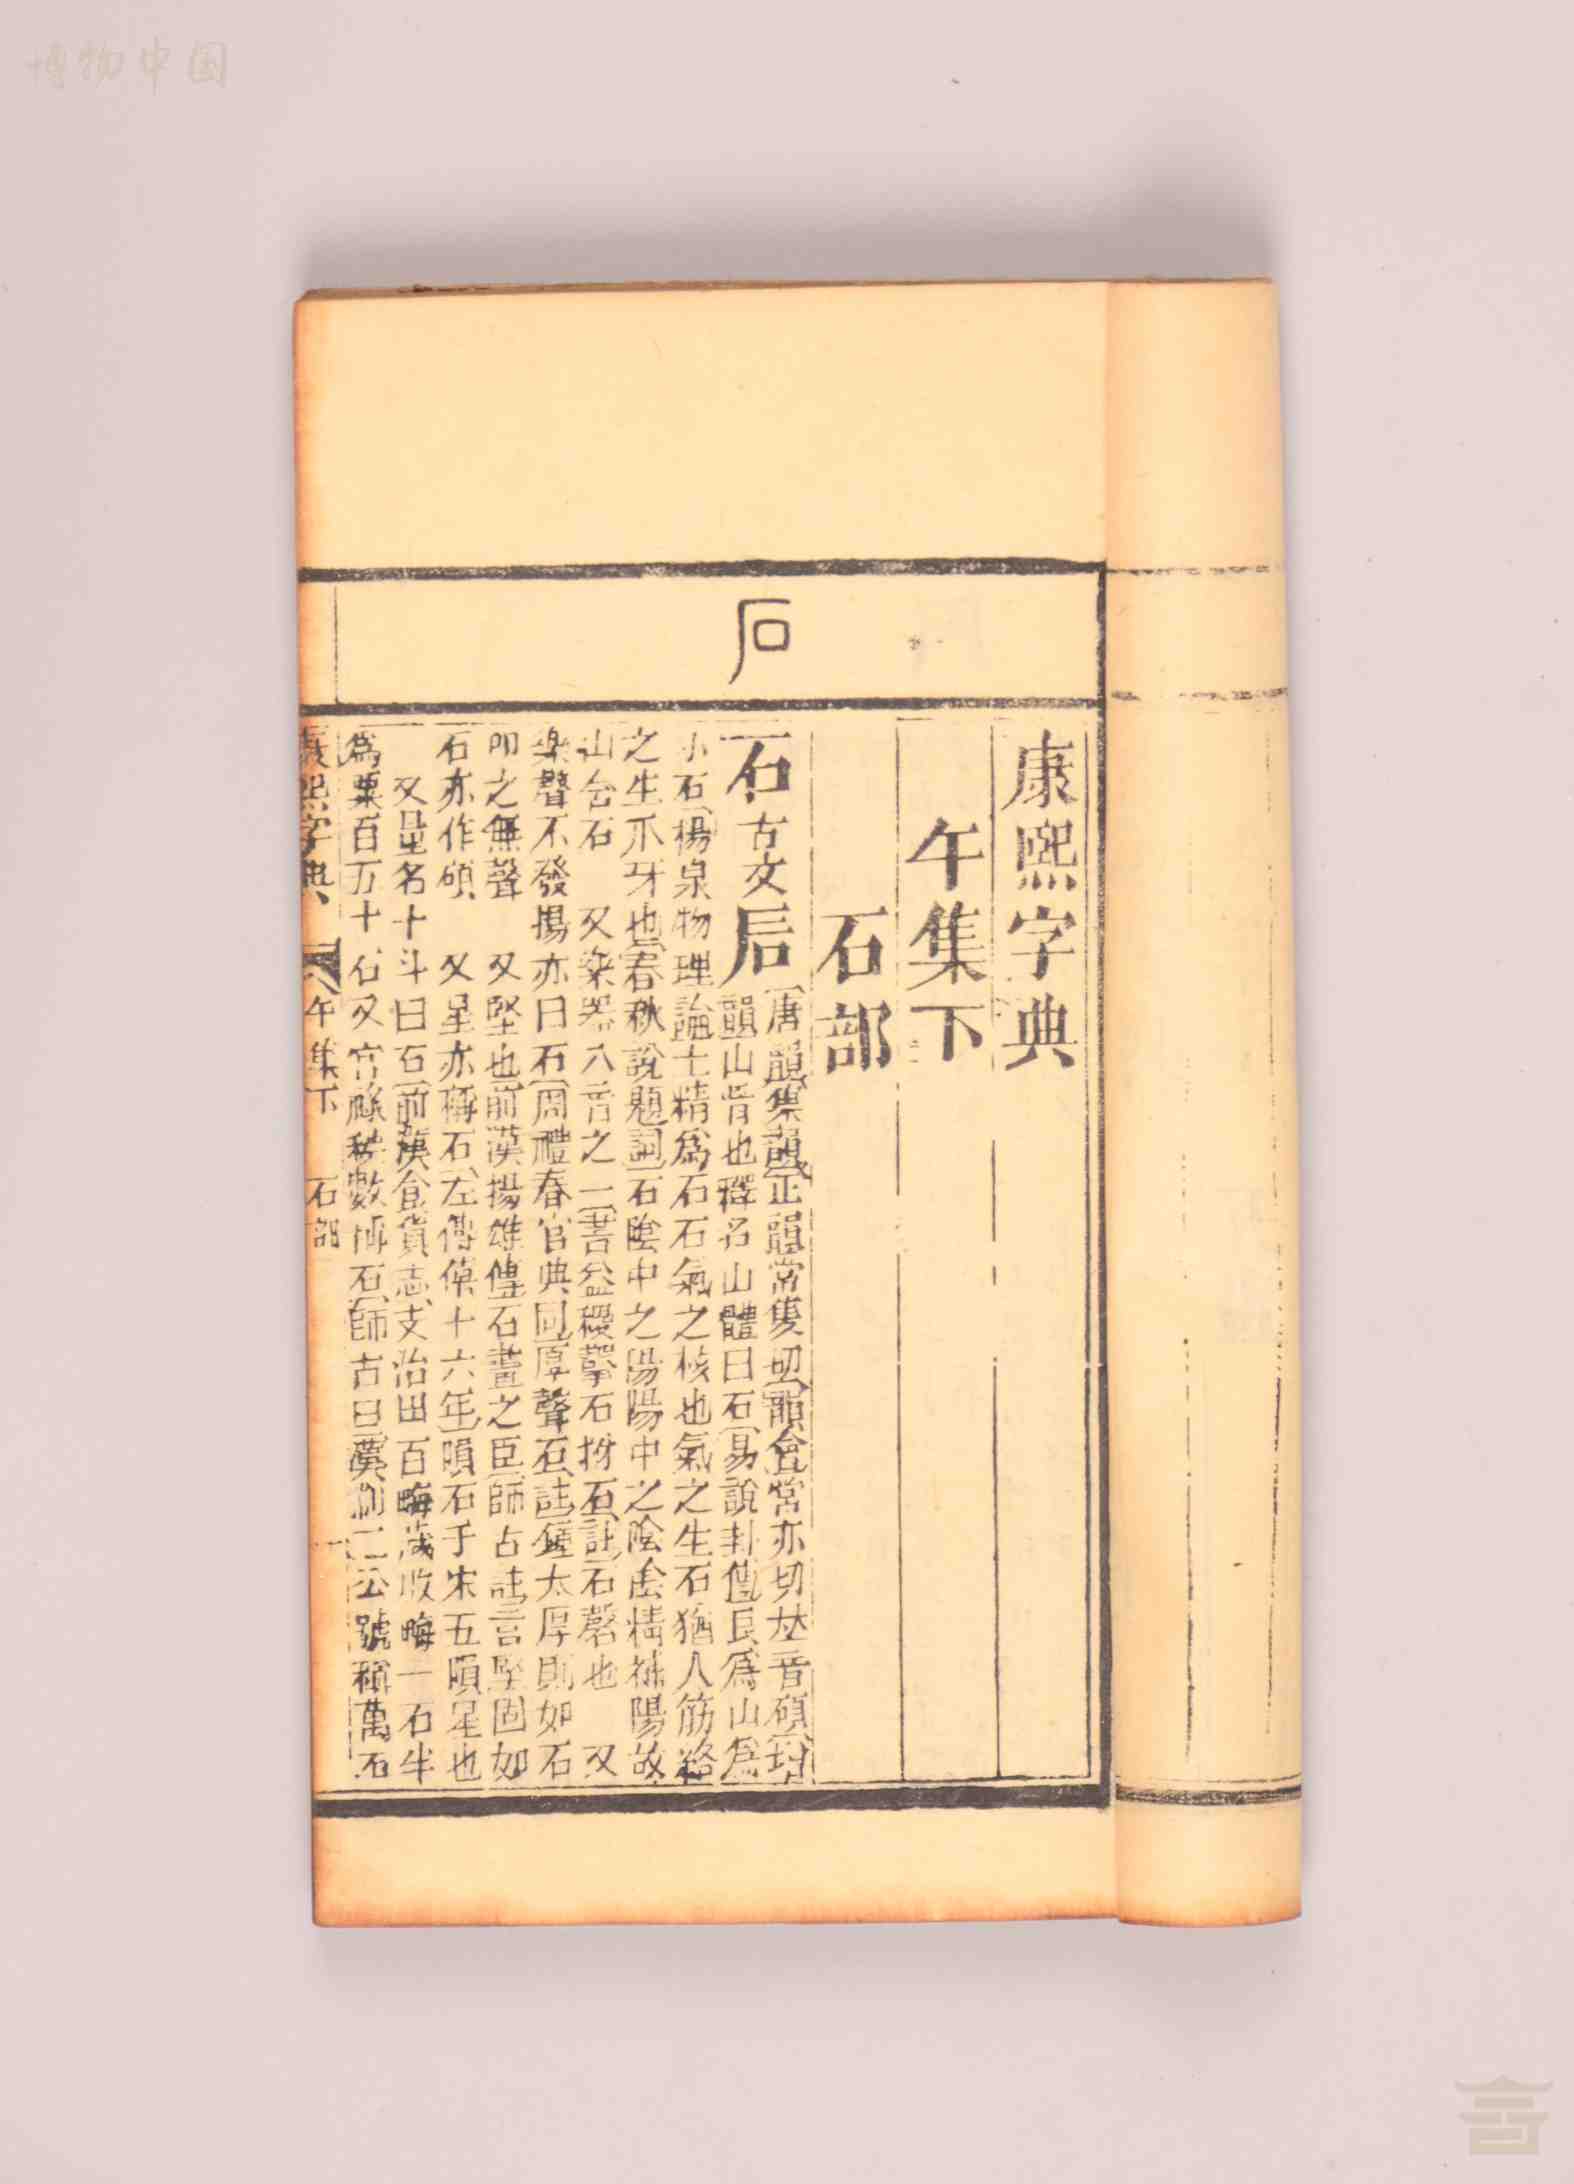 博物中国
石
康熙字典
午集下
石部
石古文后
唐韻集韻正韻常隻切韻會常亦切𠀤音碩增
韻山骨也釋名山體曰石易說卦傳艮爲山爲
小石楊泉物理論土精爲石石氣之核也氣之生石猶人筋絡
之生爪牙也春秋說題詞石陰中之陽陽中之陰陰精補陽故
山含石 又樂器八音之一書益稷擊石拊石註石磬也 又
樂聲不發揚亦曰石周禮春官典同厚聲石註鐘太厚則如石
叩之無聲 又堅也前漢揚雄傳石畫之臣師古註言堅固如
石亦作碩 又星亦稱石左傳僖十六年隕石于宋五隕星也
又量名十斗曰石前漢食貨志支治田百畮歲收畮一石半
爲粟百五十石又官祿秩數稱石師古曰漢制三公號稱萬石
康熙字典 午集下 石部 一